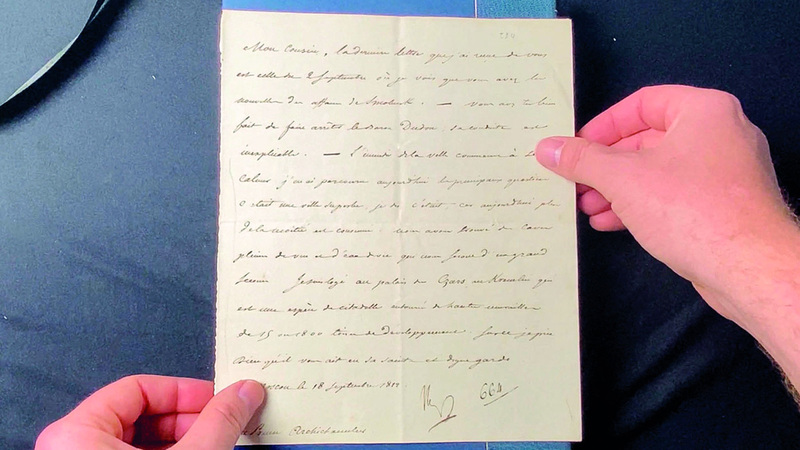 Mon Cousin, la dernière lettre que j'ai reçue de vous
est celle du 2 Septembre où je vois que vous avez les
nouvelles des affaires de Smolensk. — Vous avez très bien
fait de faire arrêter le Baron Dudon, sa conduite est
inexplicable. — L'incendie de la ville commence à se
calmer j'ai parcouru aujourd'hui les principaux quartiers
c'était une ville superbe, je dis c'était, car aujourd'hui plus
de la moitié est consumé. nous avons trouvé des caves
pleines de vin et d'eau de vie qui nous seront d'un grand
secours. Je suis logé au palais des Czars au Kremlin qui
est une espèce de citadelle entouré de hautes murailles
de 15 ou 1800 toises de développement. Sur ce je prie
Dieu qu'il vous ait en sa sainte et digne garde
Moscou le 18 Septembre 1812
664